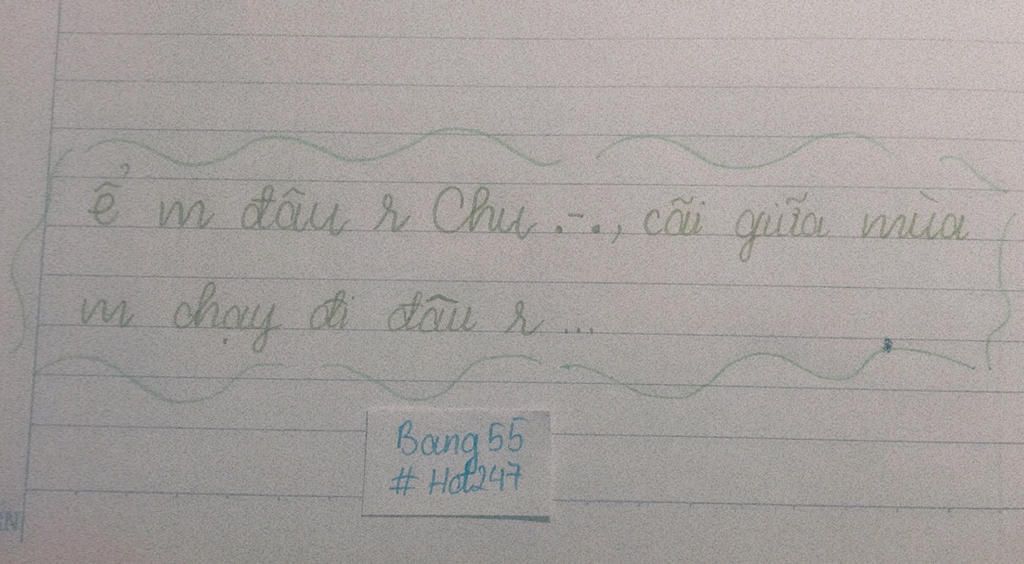 ể m đâu r Chu .-., cãi giữa mùa
m chạy đi đâu r...
Bang 55
# Hot247